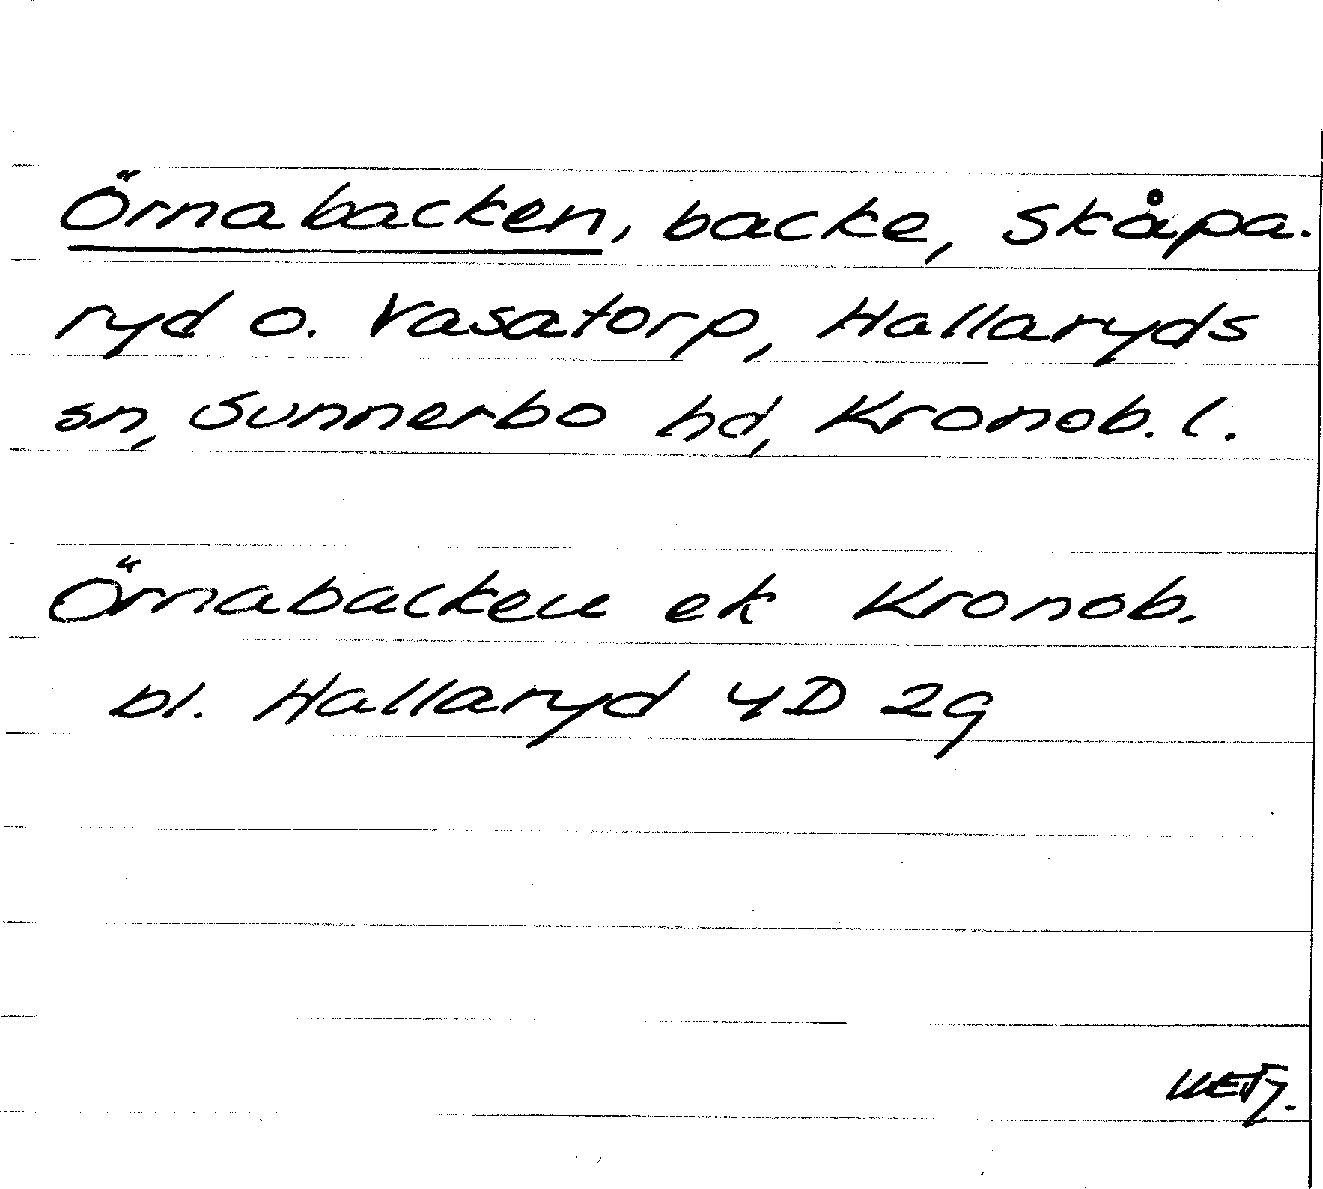 Örnabacken, backe, Skåpa.
ryd o. Vasatorp, Hallaryds
sn, Sunnerbo hd, Kronob. l.
Örnabacken ek Kronob.
bl. Hallaryd 4D 2g